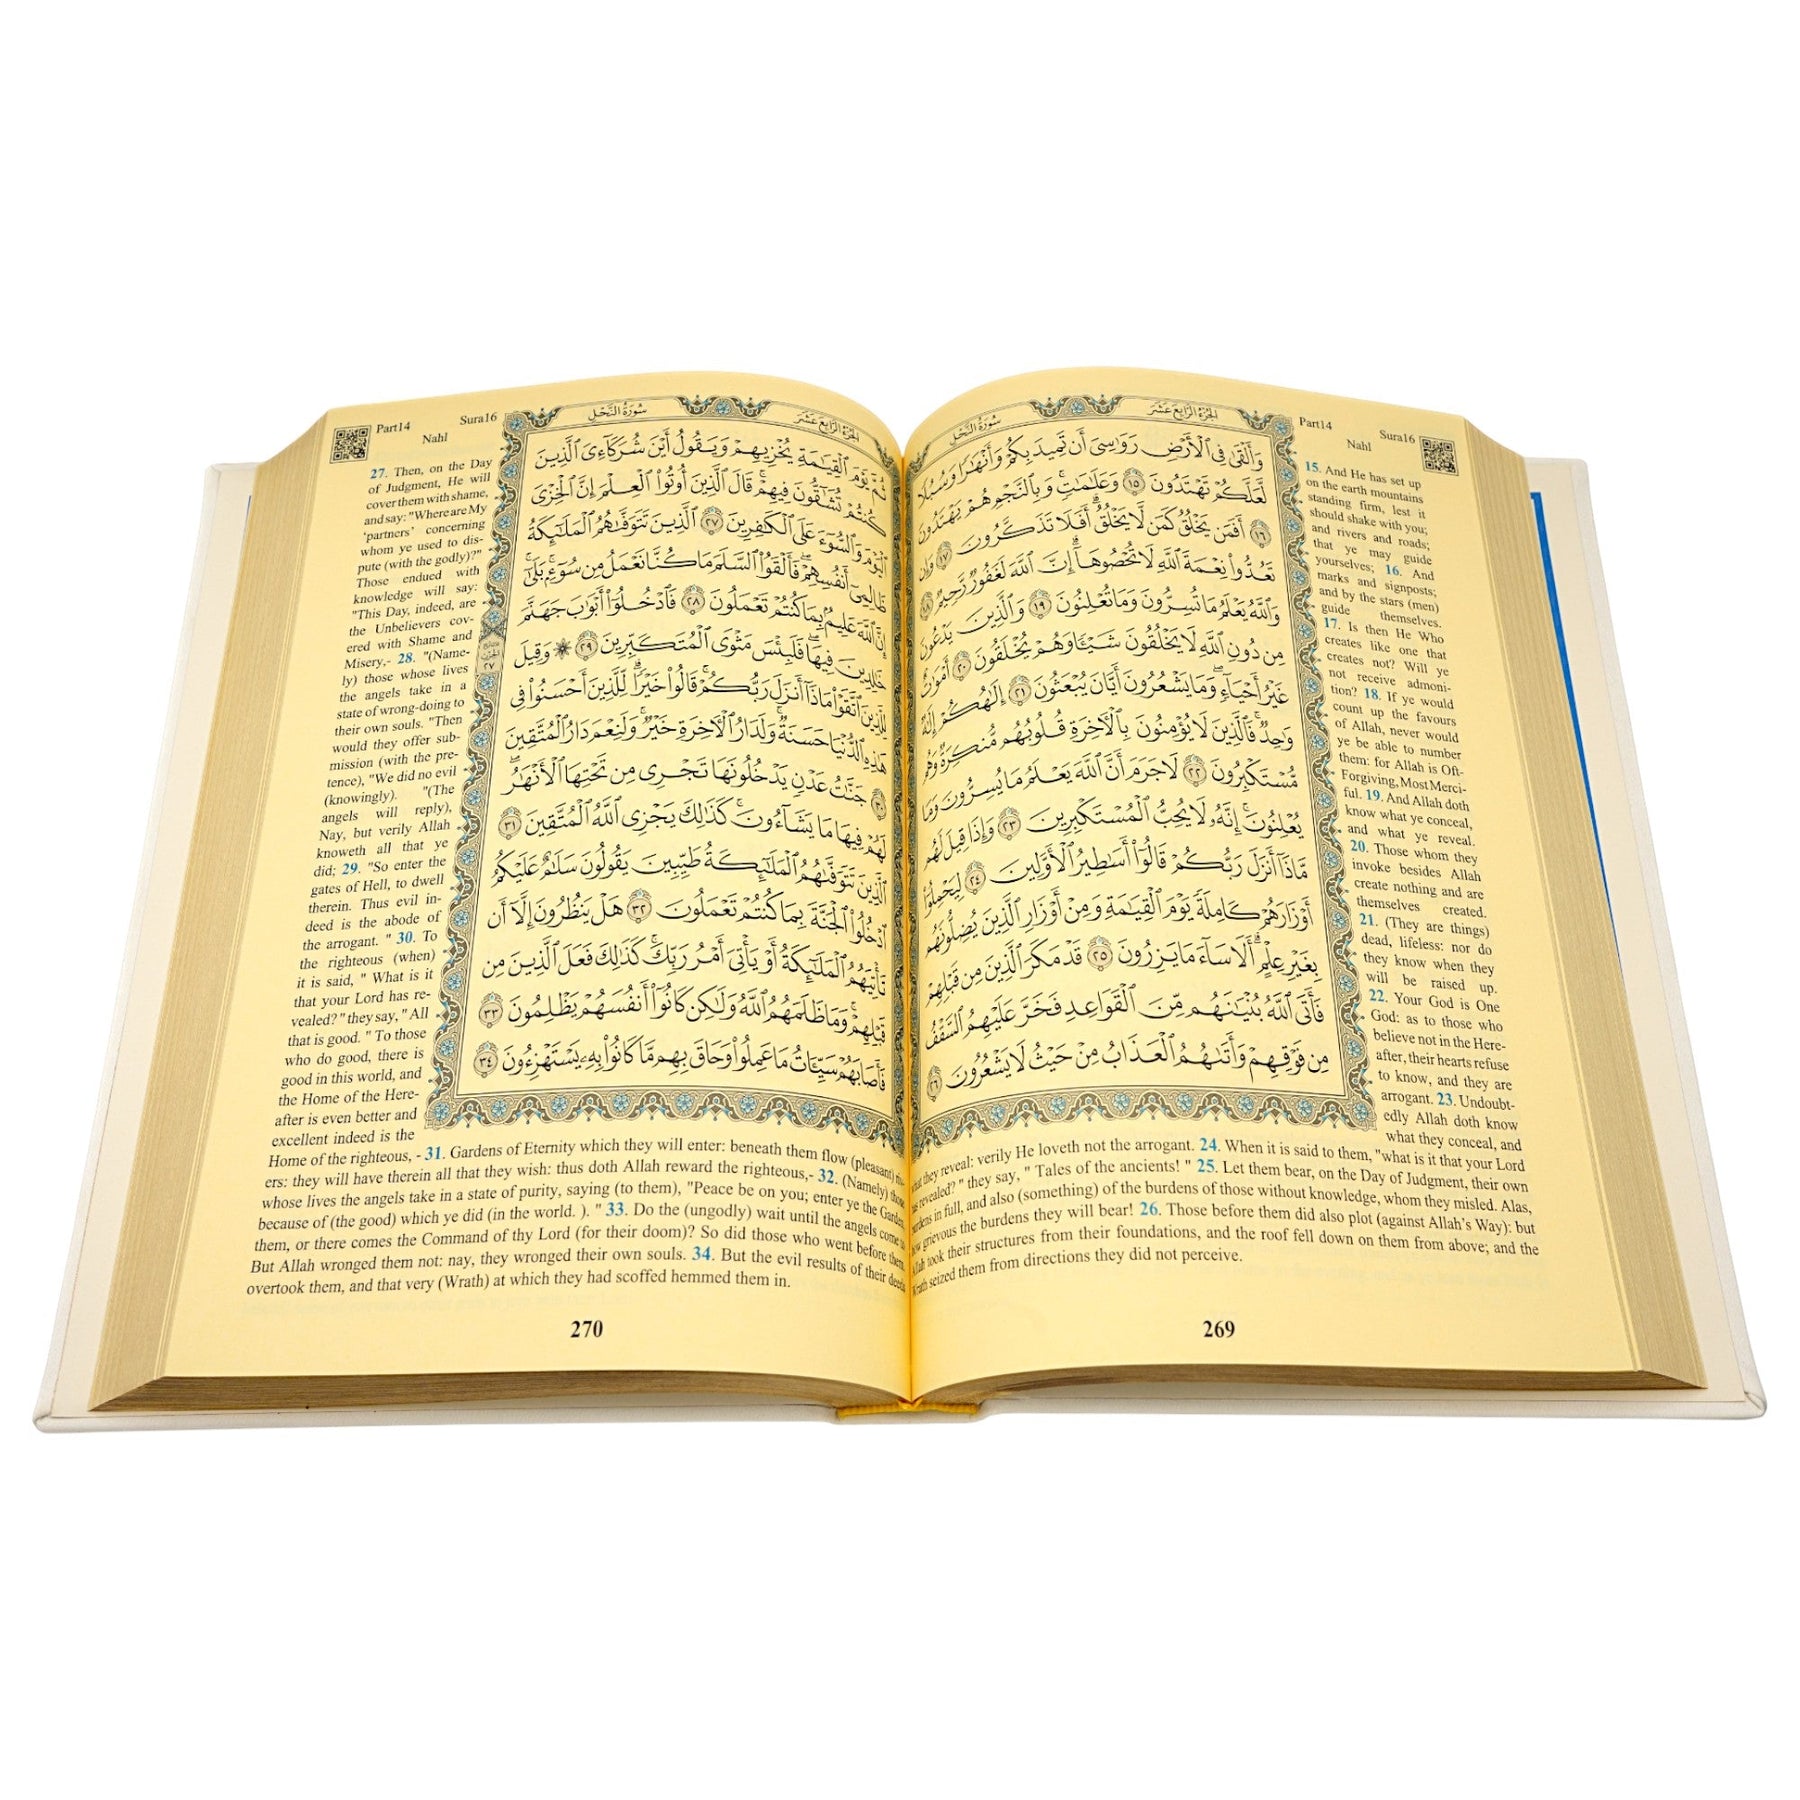 Part14
Sura16
Nahl
سُورَةُ النَّحْلِ
الجُزْءُ الرَّابِعَ عَشَرَ
وَأَلْقَىٰ فِى ٱلْأَرْضِ رَوَٰسِىَ أَن تَمِيدَ بِكُمْ وَأَنْهَٰرًا وَسُبُلًا
لَّعَلَّكُمْ تَهْتَدُونَ ١٥ وَعَلَٰمَٰتٍ ۚ وَبِٱلنَّجْمِ هُمْ يَهْتَدُونَ
١٦ أَفَمَن يَخْلُقُ كَمَن لَّا يَخْلُقُ ۗ أَفَلَا تَذَكَّرُونَ ١٧ وَإِن
تَعُدُّوا۟ نِعْمَةَ ٱللَّهِ لَا تُحْصُوهَآ ۗ إِنَّ ٱللَّهَ لَغَفُورٌ رَّحِيمٌ ١٨
وَٱللَّهُ يَعْلَمُ مَا تُسِرُّونَ وَمَا تُعْلِنُونَ ١٩ وَٱلَّذِينَ يَدْعُونَ
مِن دُونِ ٱللَّهِ لَا يَخْلُقُونَ شَيْـًٔا وَهُمْ يُخْلَقُونَ ٢٠ أَمْوَٰتٌ
غَيْرُ أَحْيَآءٍ ۖ وَمَا يَشْعُرُونَ أَيَّانَ يُبْعَثُونَ ٢١ إِلَٰهُكُمْ إِلَٰهٌ
وَٰحِدٌ ۚ فَٱلَّذِينَ لَا يُؤْمِنُونَ بِٱلْءَاخِرَةِ قُلُوبُهُم مُّنكِرَةٌ وَهُم
مُّسْتَكْبِرُونَ ٢٢ لَا جَرَمَ أَنَّ ٱللَّهَ يَعْلَمُ مَا يُسِرُّونَ وَمَا
يُعْلِنُونَ ۚ إِنَّهُۥ لَا يُحِبُّ ٱلْمُسْتَكْبِرِينَ ٢٣ وَإِذَا قِيلَ لَهُم
مَّاذَآ أَنزَلَ رَبُّكُمْ ۙ قَالُوٓا۟ أَسَٰطِيرُ ٱلْأَوَّلِينَ ٢٤ لِيَحْمِلُوٓا۟
أَوْزَارَهُمْ كَامِلَةً يَوْمَ ٱلْقِيَٰمَةِ ۙ وَمِنْ أَوْزَارِ ٱلَّذِينَ يُضِلُّونَهُم
بِغَيْرِ عِلْمٍ ۗ أَلَا سَآءَ مَا يَزِرُونَ ٢٥ قَدْ مَكَرَ ٱلَّذِينَ مِن قَبْلِهِمْ
فَأَتَى ٱللَّهُ بُنْيَٰنَهُم مِّنَ ٱلْقَوَاعِدِ فَخَرَّ عَلَيْهِمُ ٱلسَّقْفُ
مِن فَوْقِهِمْ وَأَتَىٰهُمُ ٱلْعَذَابُ مِنْ حَيْثُ لَا يَشْعُرُونَ ٢٦
15. And He has set up
on the earth mountains
standing firm, lest it
should shake with you;
and rivers and roads;
that ye may guide
yourselves; 16. And
marks and signposts;
and by the stars (men)
guide themselves.
17. Is then He Who
creates like one that
creates not? Will ye
not receive admoni-
tion? 18. If ye would
count up the favours
of Allah, never would
ye be able to number
them: for Allah is Oft-
Forgiving, Most Merci-
ful. 19. And Allah doth
know what ye conceal,
and what ye reveal.
20. Those whom they
invoke besides Allah
create nothing and are
themselves created.
21. (They are things)
dead, lifeless: nor do
they know when they
will be raised up.
22. Your God is One
God: as to those who
believe not in the Here-
after, their hearts refuse
to know, and they are
arrogant. 23. Undoubt-
edly Allah doth know
what they conceal, and
what they reveal: verily He loveth not the arrogant. 24. When it is said to them, "what is it that your Lord
has revealed? " they say, " Tales of the ancients! " 25. Let them bear, on the Day of Judgment, their own
burdens in full, and also (something) of the burdens of those without knowledge, whom they misled. Alas,
how grievous the burdens they will bear! 26. Those before them did also plot (against Allah's Way): but
Allah took their structures from their foundations, and the roof fell down on them from above; and the
Wrath seized them from directions they did not perceive.
269
Part14
Sura16
Nahl
سُورَةُ النَّحْلِ
الجُزْءُ الرَّابِعَ عَشَرَ
ثُمَّ يَوْمَ ٱلْقِيَٰمَةِ يُخْزِيهِمْ وَيَقُولُ أَيْنَ شُرَكَآءِىَ ٱلَّذِينَ
كُنتُمْ تُشَٰٓقُّونَ فِيهِمْ ۚ قَالَ ٱلَّذِينَ أُوتُوا۟ ٱلْعِلْمَ إِنَّ ٱلْخِزْىَ
ٱلْيَوْمَ وَٱلسُّوٓءَ عَلَى ٱلْكَٰفِرِينَ ٢٧ ٱلَّذِينَ تَتَوَفَّىٰهُمُ ٱلْمَلَٰٓئِكَةُ
ظَالِمِىٓ أَنفُسِهِمْ ۖ فَأَلْقَوُا۟ ٱلسَّلَمَ مَا كُنَّا نَعْمَلُ مِن سُوٓءٍۭ ۚ بَلَىٰٓ
إِنَّ ٱللَّهَ عَلِيمٌۢ بِمَا كُنتُمْ تَعْمَلُونَ ٢٨ فَٱدْخُلُوٓا۟ أَبْوَٰبَ جَهَنَّمَ
خَٰلِدِينَ فِيهَا ۖ فَلَبِئْسَ مَثْوَى ٱلْمُتَكَبِّرِينَ ٢٩ ۞ وَقِيلَ
لِلَّذِينَ ٱتَّقَوْا۟ مَاذَآ أَنزَلَ رَبُّكُمْ ۚ قَالُوا۟ خَيْرًا ۗ لِّلَّذِينَ أَحْسَنُوا۟ فِى
هَٰذِهِ ٱلدُّنْيَا حَسَنَةٌ ۚ وَلَدَارُ ٱلْءَاخِرَةِ خَيْرٌ ۚ وَلَنِعْمَ دَارُ ٱلْمُتَّقِينَ
٣٠ جَنَّٰتُ عَدْنٍ يَدْخُلُونَهَا تَجْرِى مِن تَحْتِهَا ٱلْأَنْهَٰرُ ۖ
لَهُمْ فِيهَا مَا يَشَآءُونَ ۚ كَذَٰلِكَ يَجْزِى ٱللَّهُ ٱلْمُتَّقِينَ ٣١
ٱلَّذِينَ تَتَوَفَّىٰهُمُ ٱلْمَلَٰٓئِكَةُ طَيِّبِينَ ۙ يَقُولُونَ سَلَٰمٌ عَلَيْكُمُ
ٱدْخُلُوا۟ ٱلْجَنَّةَ بِمَا كُنتُمْ تَعْمَلُونَ ٣٢ هَلْ يَنظُرُونَ إِلَّآ أَن
تَأْتِيَهُمُ ٱلْمَلَٰٓئِكَةُ أَوْ يَأْتِىَ أَمْرُ رَبِّكَ ۚ كَذَٰلِكَ فَعَلَ ٱلَّذِينَ مِن
قَبْلِهِمْ ۚ وَمَا ظَلَمَهُمُ ٱللَّهُ وَلَٰكِن كَانُوٓا۟ أَنفُسَهُمْ يَظْلِمُونَ ٣٣
فَأَصَابَهُمْ سَيِّـَٔاتُ مَا عَمِلُوا۟ وَحَاقَ بِهِم مَّا كَانُوا۟ بِهِۦ يَسْتَهْزِءُونَ ٣٤
27. Then, on the Day
of Judgment, He will
cover them with shame,
and say: "Where are My
'partners' concerning
whom ye used to dis-
pute (with the godly)?"
Those endued with
knowledge will say:
"This Day, indeed, are
the Unbelievers cov-
ered with Shame and
Misery,- 28. "(Name-
ly) those whose lives
the angels take in a
state of wrong-doing to
their own souls. "Then
would they offer sub-
mission (with the pre-
tence), "We did no evil
(knowingly). "(The
angels will reply),
Nay, but verily Allah
knoweth all that ye
did; 29. "So enter the
gates of Hell, to dwell
therein. Thus evil in-
deed is the abode of
the arrogant. " 30. To
the righteous (when)
it is said, " What is it
that your Lord has re-
vealed? " they say, " All
that is good. " To those
who do good, there is
good in this world, and
the Home of the Here-
after is even better and
excellent indeed is the
Home of the righteous, - 31. Gardens of Eternity which they will enter: beneath them flow (pleasant) riv-
ers: they will have therein all that they wish: thus doth Allah reward the righteous,- 32. (Namely) those
whose lives the angels take in a state of purity, saying (to them), "Peace be on you; enter ye the Garden,
because of (the good) which ye did (in the world. ). " 33. Do the (ungodly) wait until the angels come to
them, or there comes the Command of thy Lord (for their doom)? So did those who went before them.
But Allah wronged them not: nay, they wronged their own souls. 34. But the evil results of their deeds
overtook them, and that very (Wrath) at which they had scoffed hemmed them in.
270